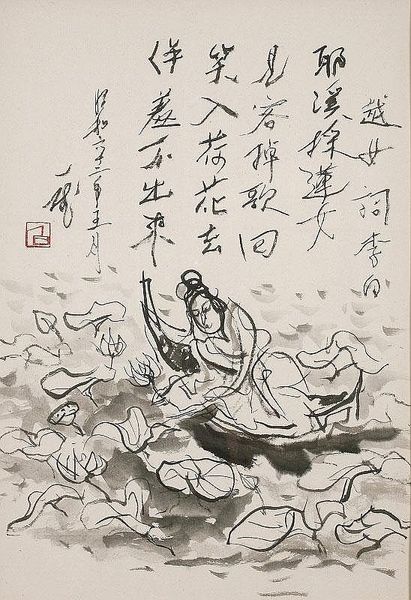 越女詞 李白
耶溪採蓮女
見客棹歌回
笑入荷花去
佯羞不出来
昭和六十二年五月